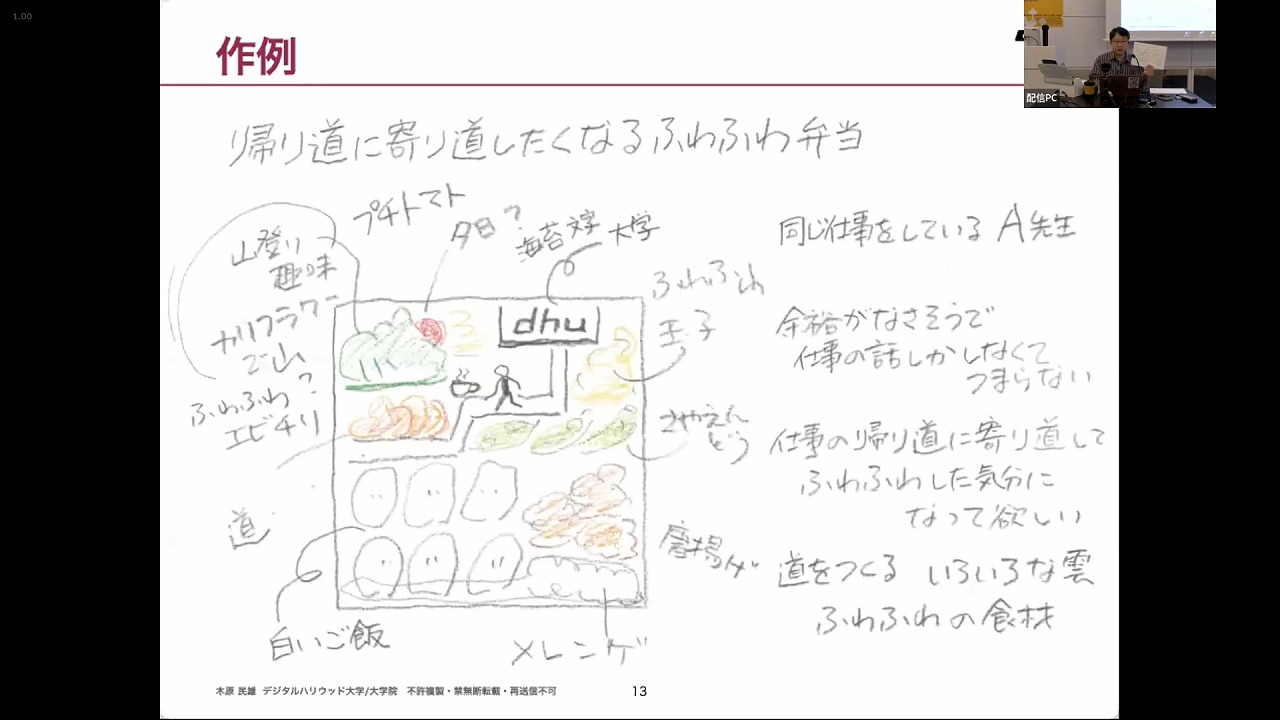 1.00
作例
配信PC
帰り道に寄り道したくなるふわふわ弁当
プチトマト
夕日?
海苔文字 大学
山登り
趣味
カリフラワー
で山
ふわふわ?
エビチリ
道
白いご飯
dhu
ふわふわ
玉子
さやえん
どう
唐揚げ
メレンゲ
同じ仕事をしている A先生
余裕がなさそうで
仕事の話しかしなくて
つまらない
仕事の帰り道に寄り道して
ふわふわした気分に
なって欲しい
道をつくる いろいろな雲
ふわふわの食材
木原 民雄 デジタルハリウッド大学/大学院 不許複製・禁無断転載・再送信不可
13